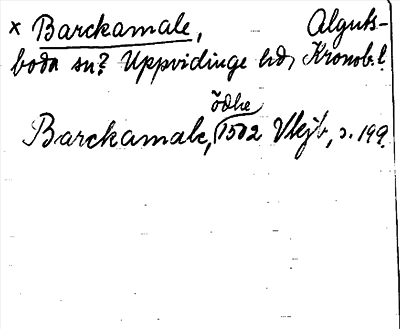 × Barckamale, Alguts-
boda sn? Uppvidinge hd, Kronob. l.
ödhe
Barckamale, 1502 Vkjb, s. 199.